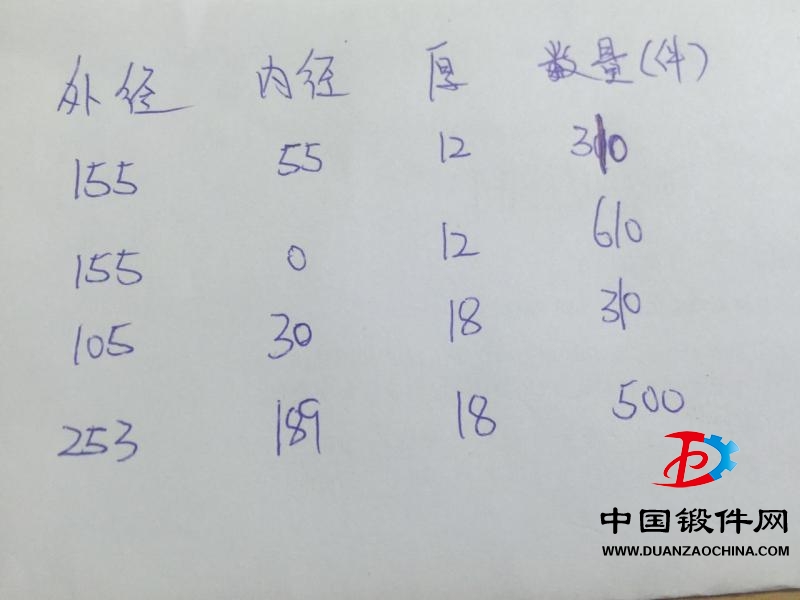 外径 内径 厚 数量(件)
155 55 12 310
155 0 12 610
105 30 18 310
253 189 18 500
中国锻件网
WWW.DUANZAOCHINA.COM